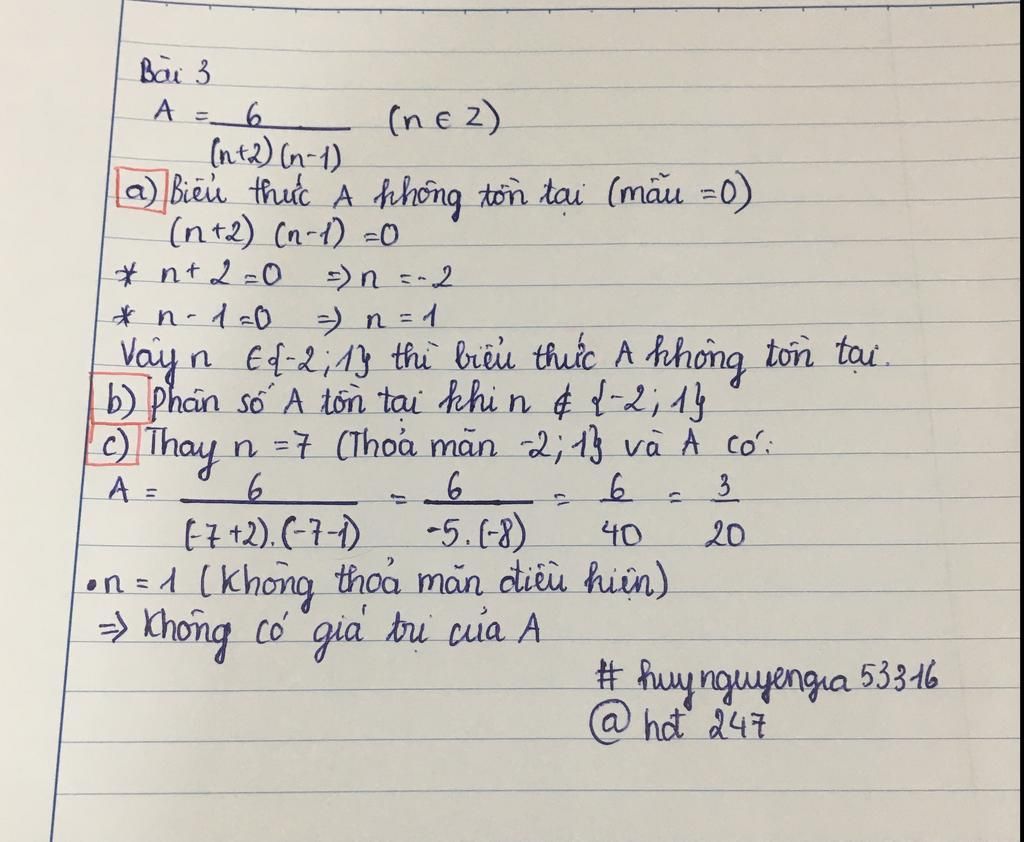 Bài 3
A = 6 / (n+2)(n-1) (n ∈ Z)
a) Biểu thức A không tồn tại (mẫu =0)
(n+2) (n-1) =0
* n+ 2 =0 => n =-2
* n - 1 =0 => n = 1
Vậy n ∈{-2; 1} thì biểu thức A không tồn tại.
b) Phân số A tồn tại khi n ∉ {-2; 1}
c) Thay n =7 (Thoả mãn -2; 1} và A có:
A = 6 / (-7+2).(-7-1) = 6 / -5.(-8) = 6 / 40 = 3 / 20
• n = 1 (Không thoả mãn điều kiện)
=> Không có giá trị của A
# huynguyengia 53316
@ hdt 247